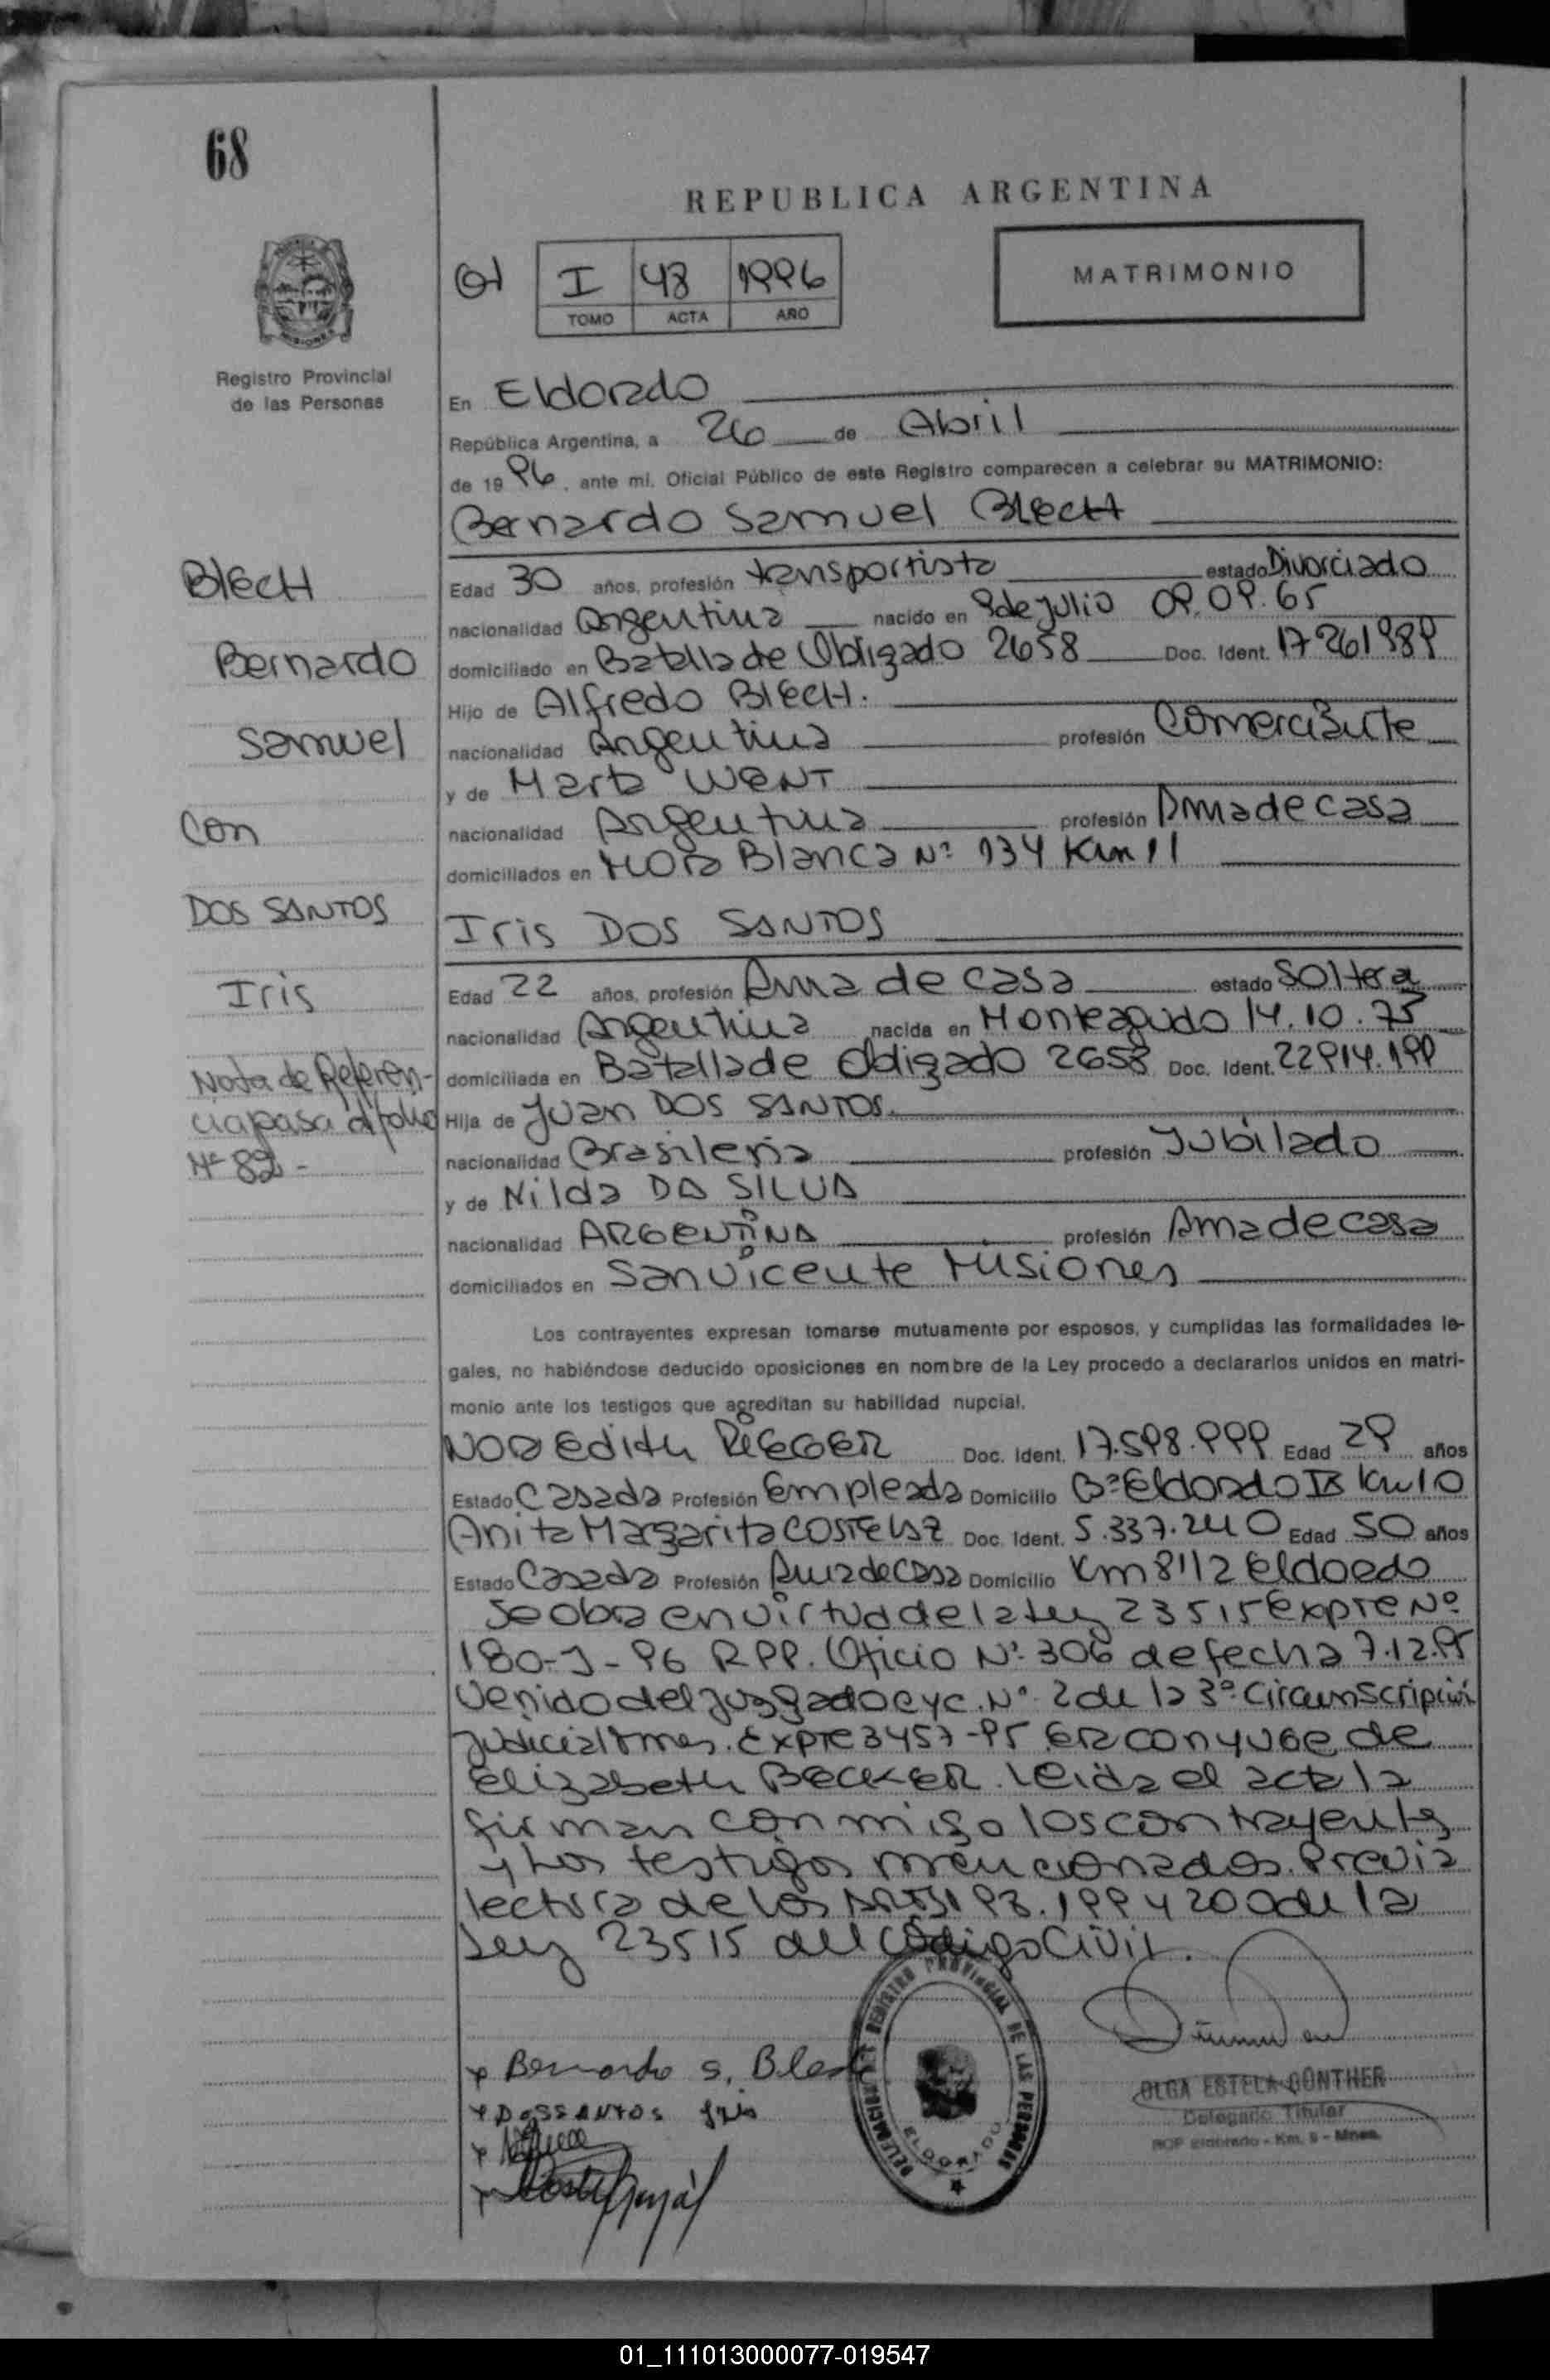 68
REPUBLICA ARGENTINA
I 48 1996
TOMO ACTA AÑO
MATRIMONIO
MISIONES
Registro Provincial
de las Personas
En Eldorado
República Argentina, a 26 de Abril
de 1996, ante mi. Oficial Público de este Registro comparecen a celebrar su MATRIMONIO:
Bernardo Samuel BlecH
BlecH
Bernardo
Samuel
Con
DOS SANTOS
Iris
Nota de Referen-
cia pasa al folio
Nº 82-
Edad 30 años, profesión transportista estado Divorciado
nacionalidad Argentina nacido en 9 de Julio 09.09.65
domiciliado en Batalla de Obligado 2658 Doc. Ident. 17261989
Hijo de Alfredo BlecH.
nacionalidad Argentina profesión Comerciante
y de Marta WENT
nacionalidad Argentina profesión Ama de casa
domiciliados en Flora Blanca Nº 134 Km 11
Iris DOS SANTOS
Edad 22 años, profesión Ama de casa estado Soltera
nacionalidad Argentina nacida en Monteagudo 14.10.73
domiciliada en Batalla de Obligado 2658 Doc. Ident. 22914.199
Hija de Juan DOS SANTOS.
nacionalidad Brasileña profesión Jubilado
y de Nilda DA SILVA
nacionalidad ARGENTINA profesión Ama de casa
domiciliados en San Vicente Misiones
Los contrayentes expresan tomarse mutuamente por esposos, y cumplidas las formalidades le-
gales, no habiéndose deducido oposiciones en nombre de la Ley procedo a declararlos unidos en matri-
monio ante los testigos que acreditan su habilidad nupcial.
Nora Edith RIEGER Doc. Ident. 17.598.999 Edad 29 años
Estado Casada Profesión Empleada Domicilio Bº Eldorado Km 10
Anita Margarita Doc. Ident. 5.337.240 Edad 50 años
Estado Casada Profesión Ama de casa Domicilio Km 8 1/2 Eldorado
Se obra en virtud de la Ley 23515 Expte Nº
180-J-96 RPP. Oficio Nº 306 de fecha 7.12.95
Venido del Juzgado C y C. Nº 2 de la 3º Circunscripción
Judicial Mnes. Expte 3457-95 ER conyuge de
Elizabeth BECKER. Leida el acta la
firman conmigo los contrayentes
y los testigos mencionados. Previa
lectura de los ARTS 198.199 y 200 de la
Ley 23515 del Código Civil.
Bernardo S. Blech
DOSSANTOS Iris
DELEGACION DEL REGISTRO PROVINCIAL DE LAS PERSONAS
ELDORADO
OLGA ESTELA GÜNTHER
Delegado Titular
RCP Eldorado - Km. 9 - Mnes.
01_111013000077-019547